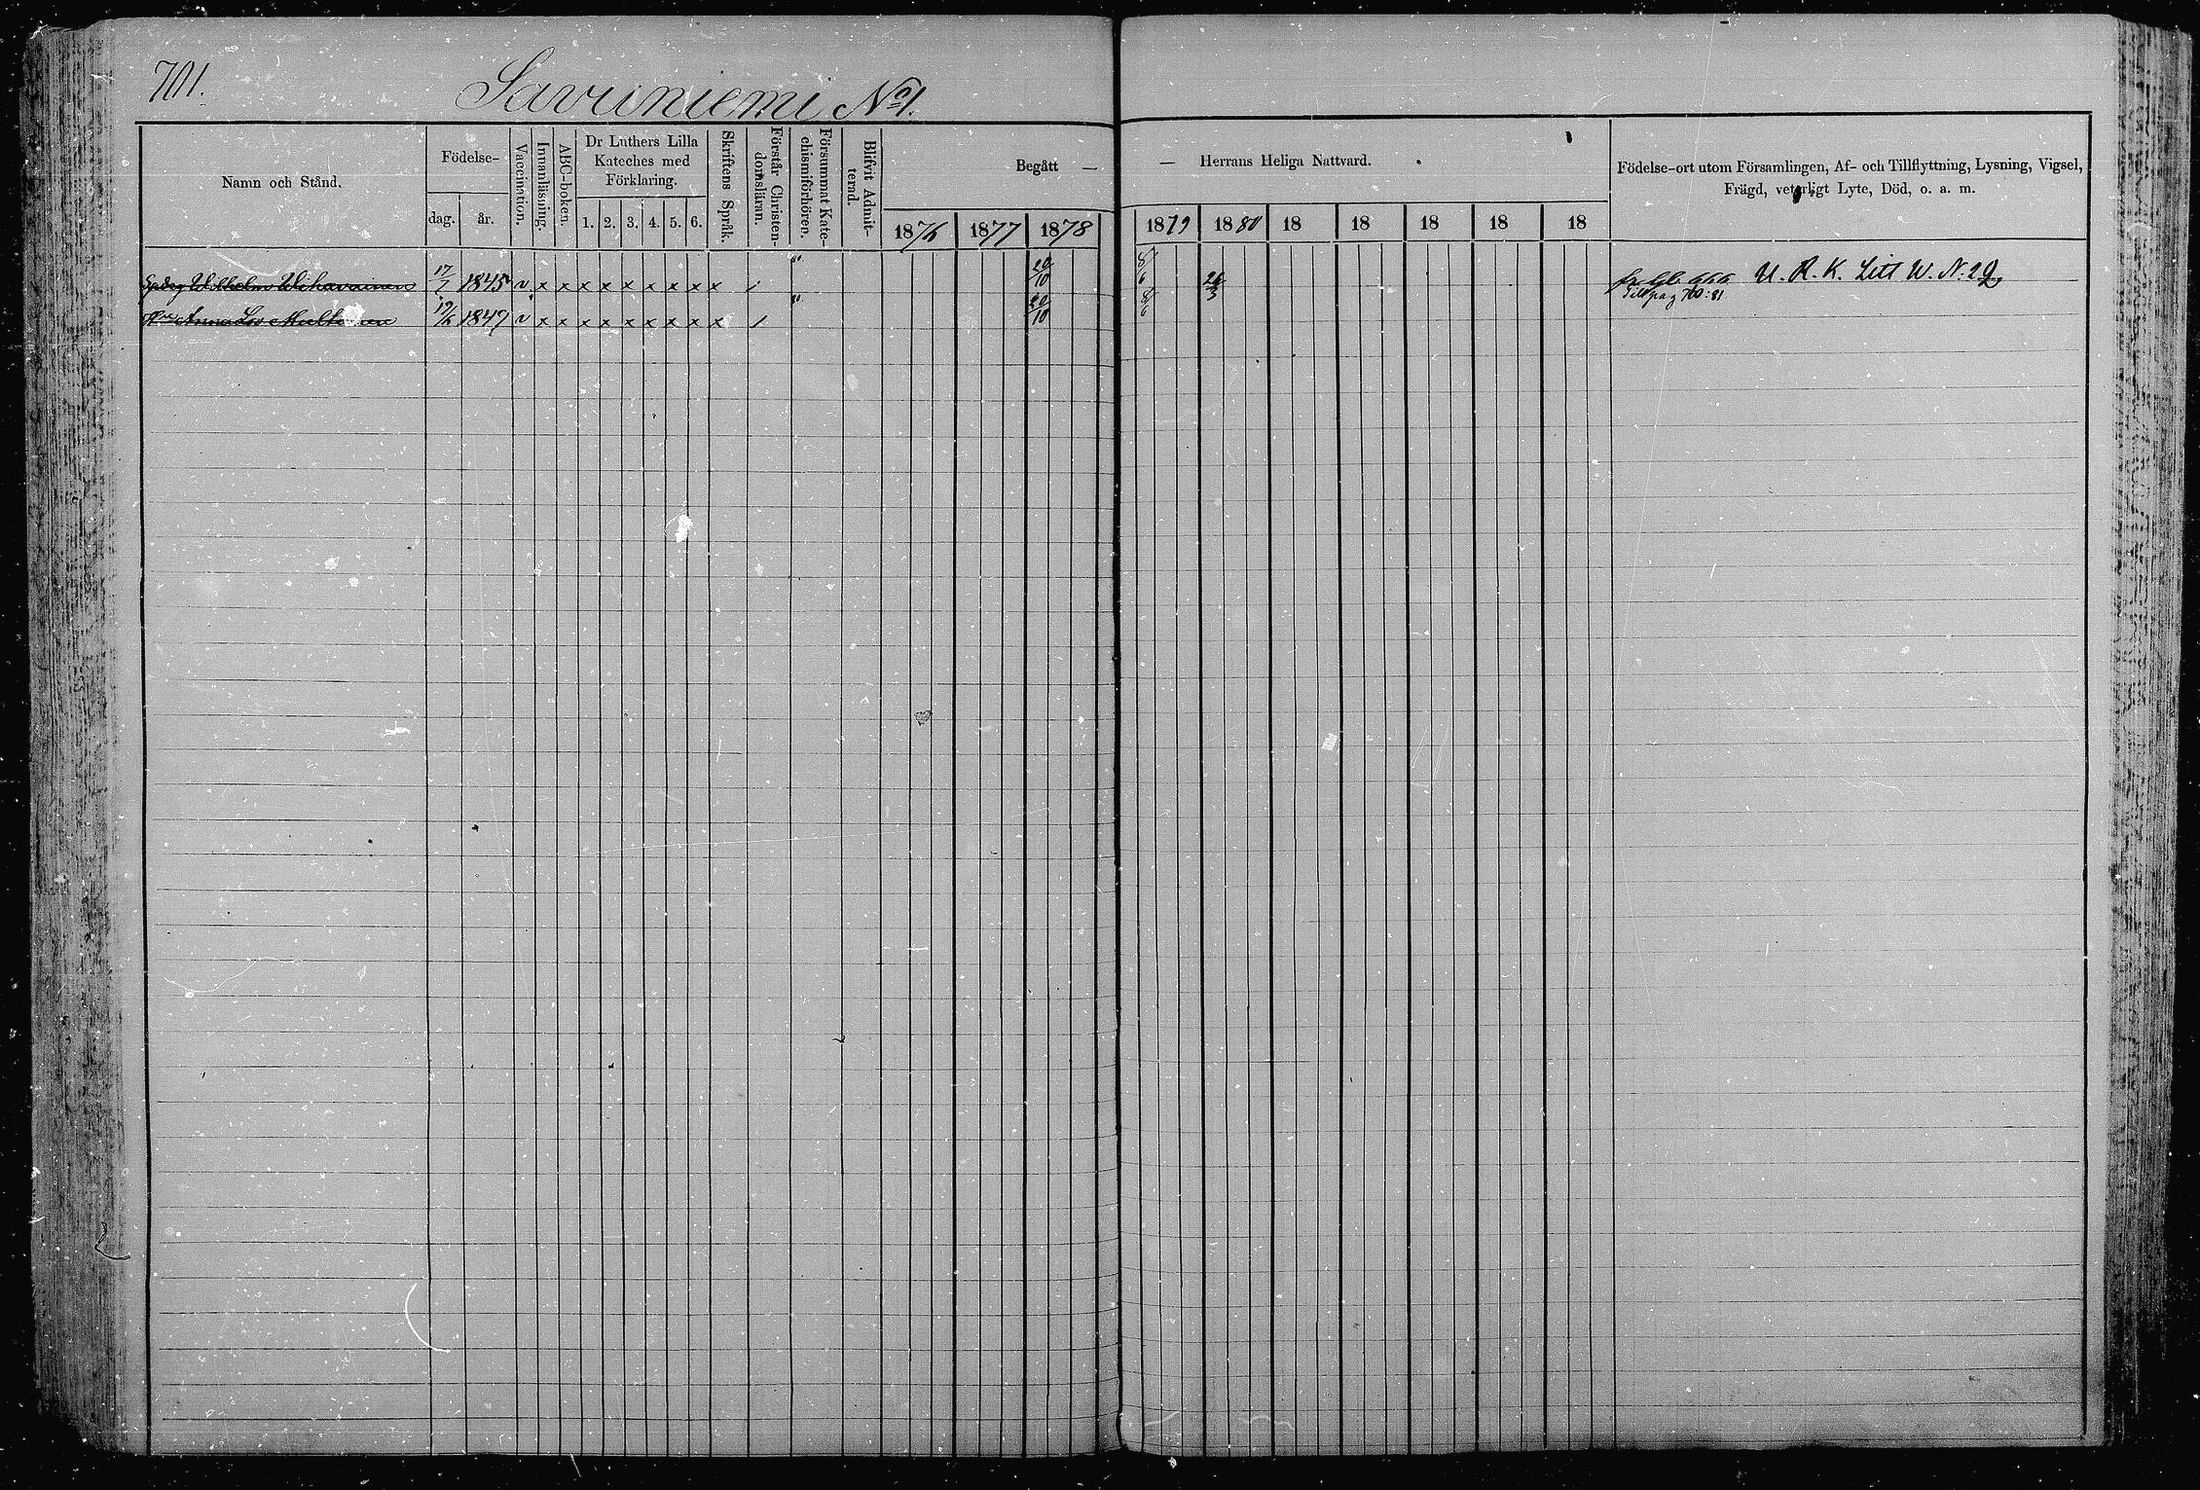 701.
Savuniemi No 1.
Namn och Stånd.
Födelse-
dag.
år.
Vaccination.
Innanläsning.
ABC-boken.
Dr Luthers Lilla
Kateches med
Förklaring.
1. 2. 3. 4. 5. 6.
Skriftens Språk.
Förstår Christen-
domsläran.
Försummat Kate-
chismiförhören.
Blifvit Admit-
terad.
Begått —
1876 1877 1878
— Herrans Heliga Nattvard.
1879 1880 18 18 18 18 18
Födelse-ort utom Församlingen, Af- och Tillflyttning, Lysning, Vigsel,
Frägd, veterligt Lyte, Död, o. a. m.
Wilhelm Wihavainen 17/7 1845 v x x x x x x x x x 20/10 8/6 26/3 U. R. K. Litt W. N:
Anna Lov. 19/6 1847 v x x x x x x x x x 20/10 8/6 Till pag 700:81